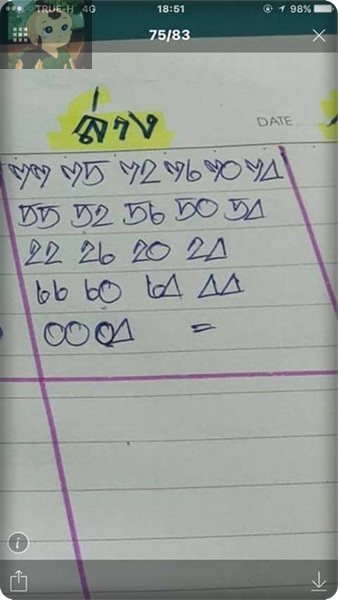 TRUE-H 4G 18:51 98%
75/83
ล่าง
DATE
77 75 72 76 70 74
55 52 56 50 54
22 26 20 24
66 60 64 44
00 04 =